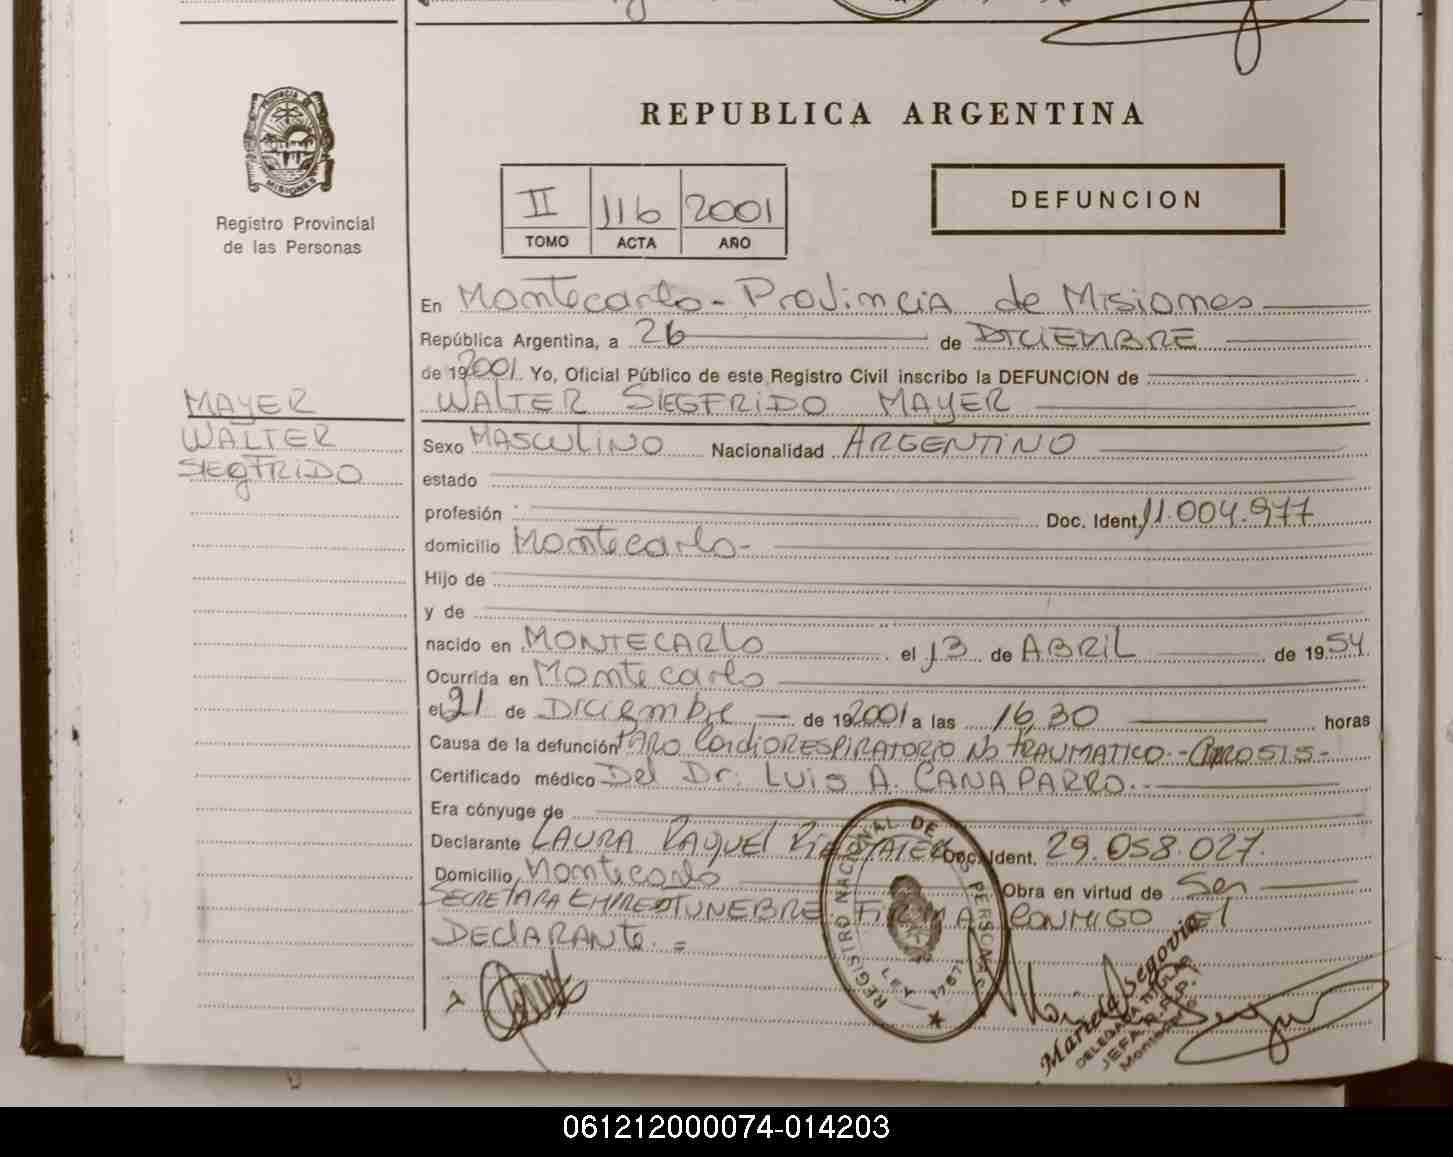 REPUBLICA ARGENTINA
PROVINCIA DE
MISIONES
Registro Provincial
de las Personas
II 116 2001
TOMO ACTA AÑO
DEFUNCION
En Montecarlo - Provincia de Misiones
República Argentina, a 26 de DICIEMBRE
de 19 2001. Yo, Oficial Público de este Registro Civil inscribo la DEFUNCION de
WALTER SIEGFRIDO MAYER
MAYER
WALTER
SIEGFRIDO
Sexo MASCULINO Nacionalidad ARGENTINO
estado
profesión Doc. Ident. 11.004.977
domicilio Montecarlo-
Hijo de
y de
nacido en MONTECARLO el 13 de ABRIL de 19 54
Ocurrida en Montecarlo
el 21 de Diciembre de 19 2001 a las 16,30 horas
Causa de la defunción PARO CARDIORESPIRATORIO NO TRAUMATICO -
Certificado médico Del Dr. LUIS A. CANAPARRO.
Era cónyuge de
Declarante LAURA RAQUEL Doc. Ident. 29.058.027.
Domicilio Montecarlo Obra en virtud de Ser
SECRETARIA FUNEBRE FIRMA CONMIGO El
DECLARANTE. =
REGISTRO NACIONAL DE LAS PERSONAS
LEY 17671
Mariela Segovia
DELEGADA TITULAR
JEFA R.P.P.
Montecarlo
061212000074-014203